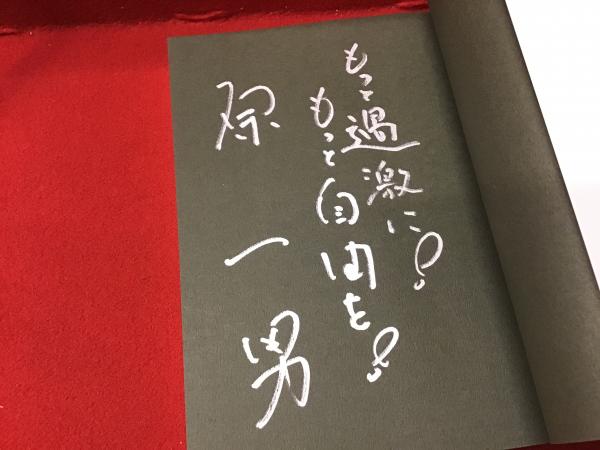 もっと過激に!
もっと自由を!
原一男